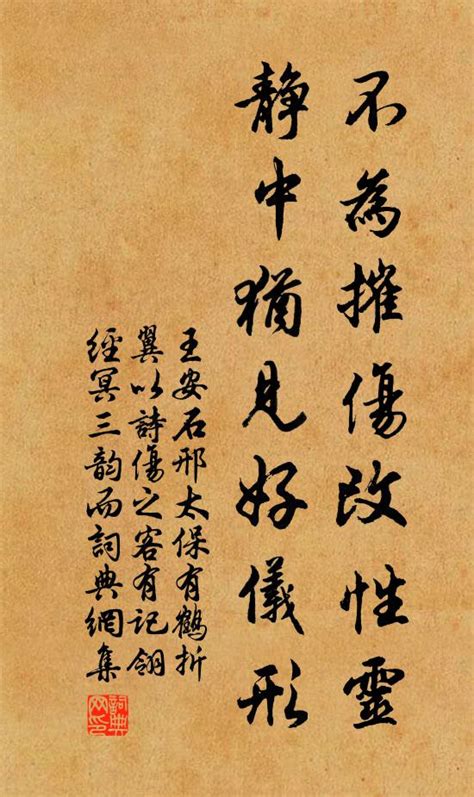 不為摧傷改性靈
靜中猶見好儀形
王安石邢太保有鶴折
翼以詩傷之客有記翎
經冥三韵而詞典網集
詞典網印